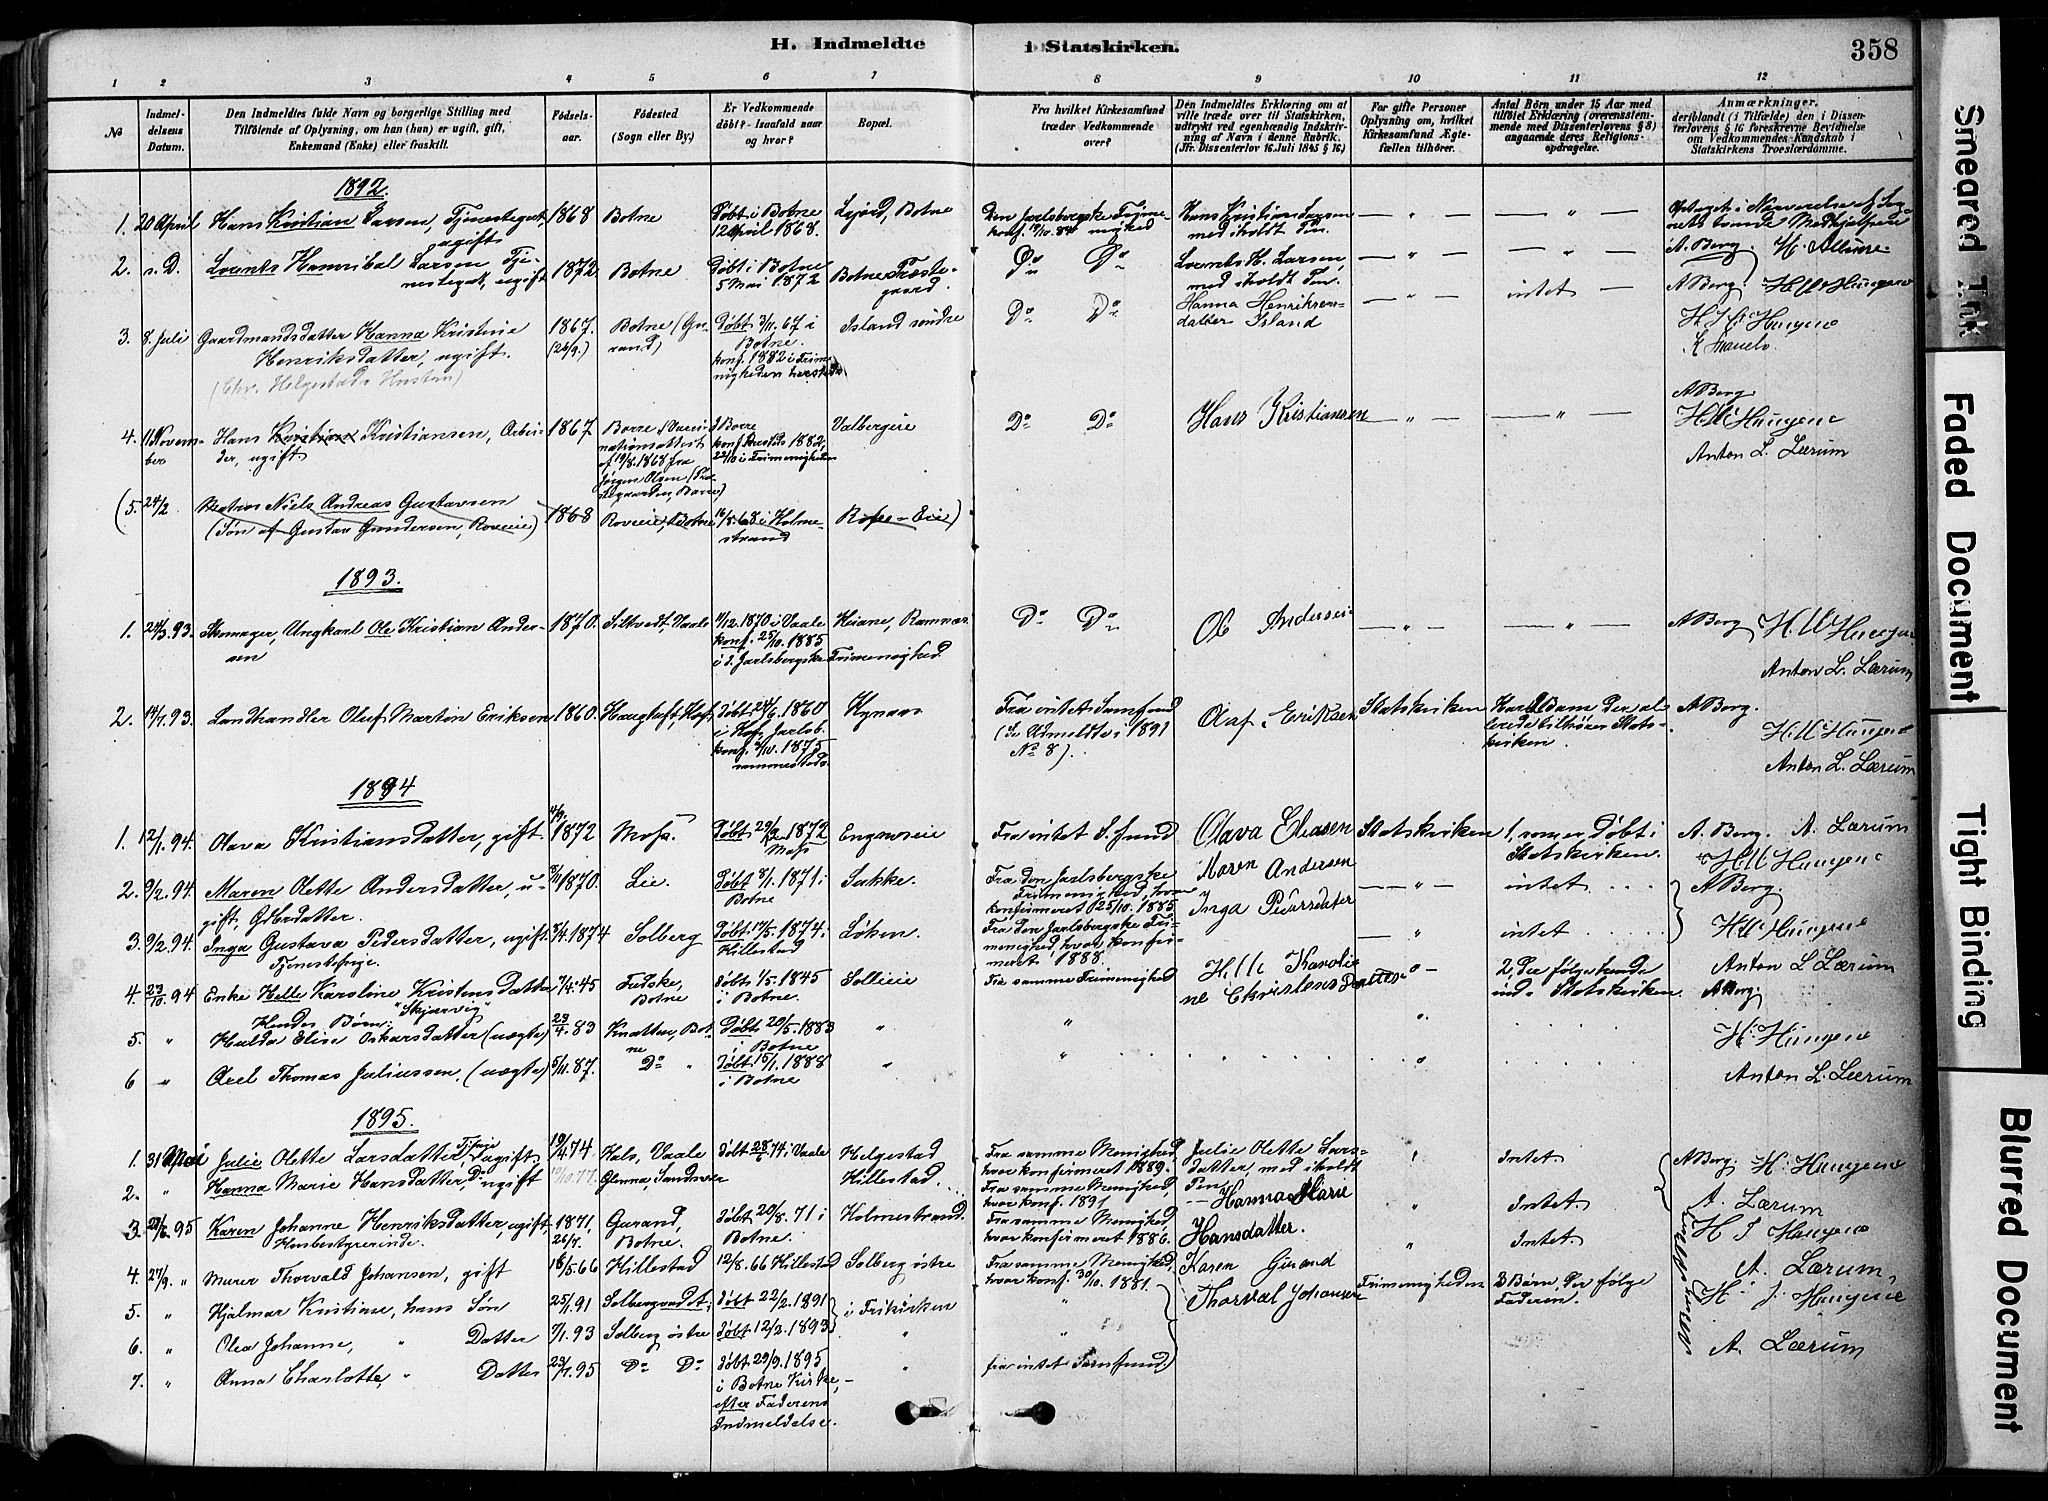 H. Indmeldte i Statskirken.
358
1 2 3 4 5 6 7 8 9 10 11 12
No
Indmel-
delsens
Datum.
Den Indmeldtes fulde Navn og borgerlige Stilling med
Tilföiende af Oplysning, om han (hun) er ugift, gift,
Enkemand (Enke) eller fraskilt.
Födsels-
aar.
Födested
(Sogn eller By.)
Er Vedkommende
döbt? - Isaafald naar
og hvor?
Bopæl.
Fra hvilket Kirkesamfund
træder Vedkommende
over?
Den Indmeldtes Erklæring om at
ville træde over til Statskirken,
udtrykt ved egenhændig Indskriv-
ning af Navn i denne Rubrik.
(Jfr. Dissenterlov 16. Juli 1845 § 16)
For gifte Personer
Oplysning om, hvilket
Kirkesamfund Ægte-
fællen tilhörer.
Antal Börn under 15 Aar med
tilföiet Erklæring (overensstem-
mende med Dissenterlovens § 8)
angaaende deres Religions-
opdragelse.
Anmærkninger,
deriblandt (i Tilfælde) den i Dissen-
terlovens § 16 foreskrevne Bevidnelse
om Vedkommendes Kundskab i
Statskirkens Troeslærdomme.
1892.
1. 20 April Hans Kristian Larsen, Tjenestegut, ugift 1868 Botne Döbt i Botne 12 April 1868. Botne
Den Jarlsbergske Frime-
nighed
Hans Kristian Larsen
med iholdt Pen.
A. Berg.
2. s.D. Lorents Hannibal Larsen Tje-
nestegut, ugift 1872 Botne Döbt i Botne 5 Mai 1872 Botne Præste-
gaard.
Do Do
Lorents H. Larsen,
med iholdt Pen.
A Berg.
3. 8. Juli Gaardmandsdatter Hanna Kristine
Henriksdatter, ugift.
(Chr. Helgestads Hustru)
1867. (26/9.) Botne, (Gu-
rand) Döbt 3/11. 67 i
Botne.
konf. 1882 i Frime-
nigheden
Island söndre
Do Do
Hanna Henriksen-
datter Island
intet
4. 11 Novem-
ber Hans Kristian Kristiansen, Arbei-
der, ugift 1867 Borre
Jörgen Olsen
Borre
konf.
1882
i Frimenigheden
Valbergeie
Do Do
Hans Kristiansen
A Berg
Anton L. Lærum
(5. 24/2 Matros Niels Andreas Gustavsen
(Sön af Gustav Gundersen, Roveeie) 1868 Roveeie, Botne 16/8. 68 i Holme-
strand
1893.
1. 24/3. 93. Skomager, Ungkarl Ole Kristian Ander-
sen 1870. Vaale 11/12. 1870 i Vaale
konf. 25/10. 1885
i d. Jarlsbergske Frimenighed
Ramnæs
Do Do
Ole Andersen
A Berg
Anton L. Lærum
2. 14/7. 93. Landhandler Oluf Martin Eriksen 1860. Haugtuft, Hof Döbt 24/6. 1860
i Hof, Jarlsb.
konf. 3/10. 1875
sammesteds.
Fra intet Samfund
(Se Udmeldte i 1891
No 8).
Olaf Eriksen
Statskirken
Har Barn der al-
lerede tilhörer Stats-
kirken.
A Berg.
Anton L. Lærum
1894
1. 12/1. 94. Olava Kristiansdatter, gift 4/9. 1872 Moss. Döbt 29/9 1872 Moss Engnæseie
Fra intet S.fund
Olava Eliasen
Statskirken
1, som er döbt i
Statskirken.
A. Berg. A. Lærum
2. 9/2. 94. Maren Olette Andersdatter, u-
gift, Gdbrdatter. 1870. Lie. Döbt 8/1. 1871 i
Botne Sukke.
Fra den Jarlsbergske
Frimenighed, hvor
konfirmeret 25/10. 1885
Maren Andersen
intet
A Berg.
3. 9/2. 94. Inga Gustava Pedersdatter, ugift.
Tjenestepige. 1874 Solberg Döbt 17/5. 1874 i
Hillestad Löken.
Fra den Jarlsbergske Fri-
menighed hvor konfir-
meret 1888.
Inga Pedersdatter
intet
Anton L Lærum
4. 23/10. 94 Enke Helle Karoline Kristensdatter
"Skjærvig" 7/4. 45 Fedske,
Botne Döbt 1/5. 1845
i Botne. Sollieie
Fra samme Frimenighed
Helle Karoli-
ne Christensdatter
2, der fölge hende
ind i Statskirken.
A Berg.
Hendes Börn:
5. " Hulda Elise Oskarsdatter (uægte) 23/4. 83 Knatten, Bot-
ne Döbt 20/5. 1883
i Botne "
6 " Axel Thomas Juliussen, (uægte) 5/11. 87. Do " Döbt 15/1. 1888
i Botne "
Anton L. Lærum
1895.
1. 31 Mai Julie Olette Larsdatter, ugift 19/4. 74 Hals, Vaale Döbt 28/6 74 i Vaale Helgestad
Fra samme Menighed,
hvor konfirmeret 1889.
Julie Olette Lars-
datter, med iholdt
Pen
Intet.
A Berg.
2. " Hanna Marie Hansdatter, Do ugift 12/10. 77. Glenna, Sandsvær Hillestad.
Fra samme Menighed,
hvor konf. 1891
Hanna Marie
Hansdatter.
Intet.
A. Lærum
3. 95 Karen Johanne Henriksdatter, ugift,
Husbestyrerinde. 1871, 26/7. Gurand,
Botne. Döbt 20/8. 71 i
Botne. Holmestrand.
Fra samme Menighed,
hvor konfirmeret 1886.
Karen Gurand
Intet.
4. 27/9. " Murer Thorvald Johansen, gift 18/5. 66 Hillestad 12/8. 66 Hillestad Solberg östre
Fra samme Menighed,
hvor konf. 30/10. 1881.
Thorval Johansen
Frimenigheden
3 Börn, der fölge
Faderen.
A. Lærum,
5. " Hjalmar Kristian, hans Sön 25/1. 91 Döbt 22/2. 1891 i Frikirken
6. " Olea Johanne, " Datter 7/1. 93 Solberg östre Döbt 12/2. 1893 "
A. Lærum
7. " Anna Charlotte, " Datter 23/7. 95 Do Do Döbt 29/9. 1895
i Botne Kirke,
efter Faderens
Indmeldelse.
fra intet Samfund.
Smeared Ink
Faded Document
Tight Binding
Blurred Document